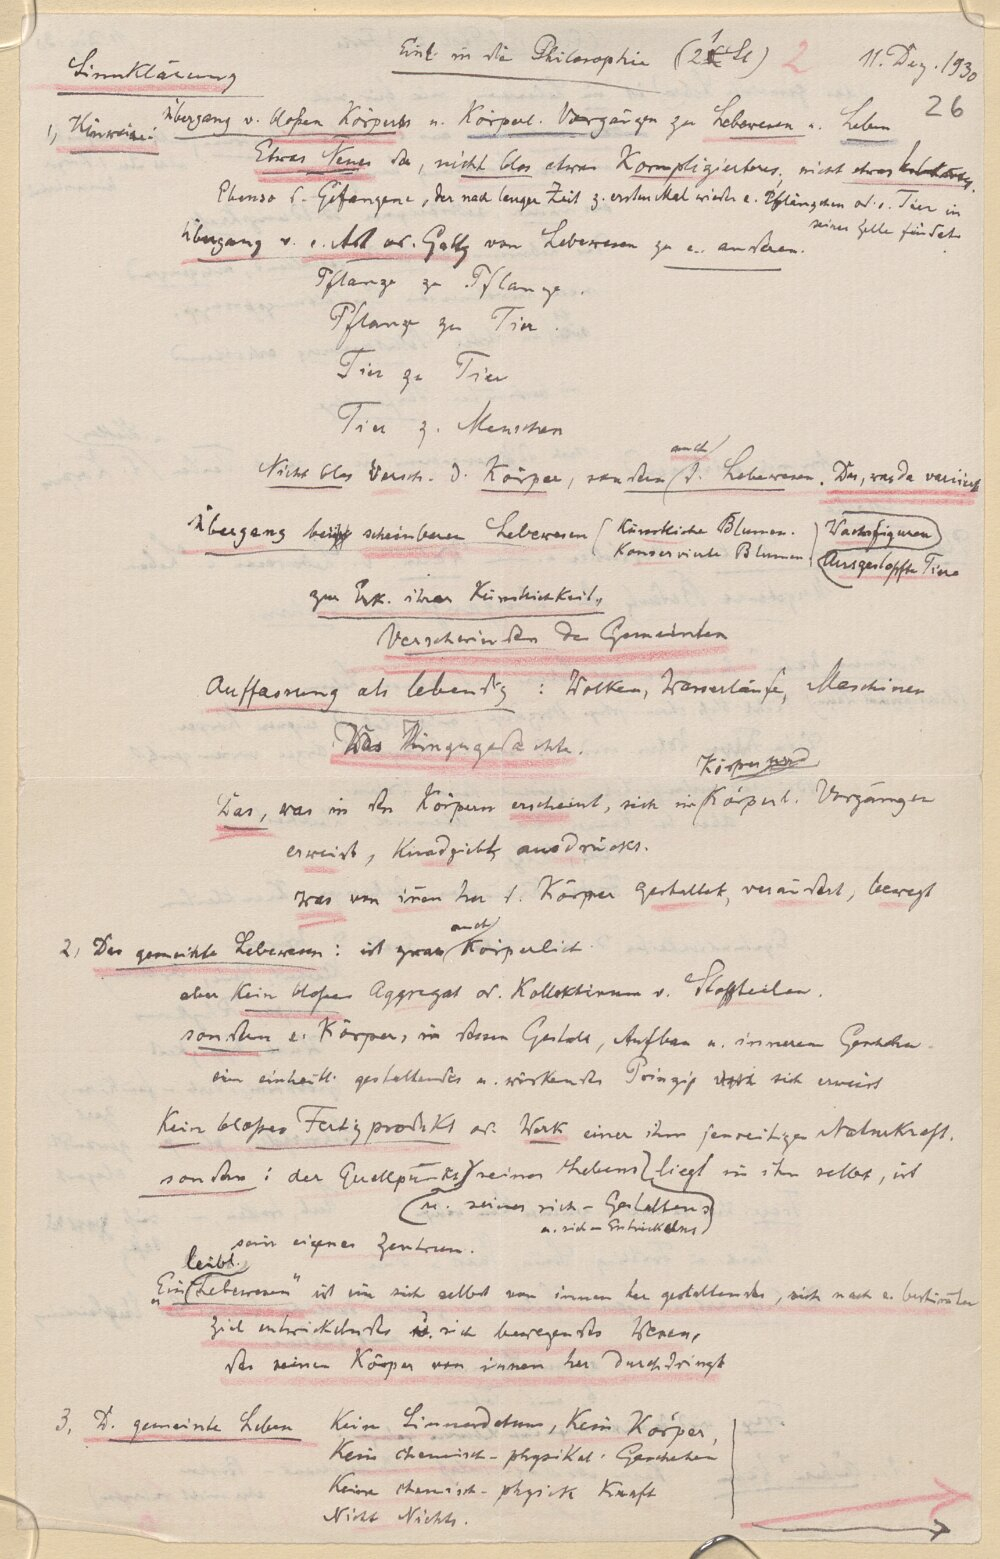 Einl. in die Philosophie (2 St) 2 11. Dez. 1930
Sinnklärung
26
1, Hinweise: Übergang v. bloßen Körpern u. Körperl. Vorgängen zu Lebewesen u. Leben
Etwas Neues da, nicht blos etwas Kompliziertes, nicht etwas
Ebenso d. Gefangene, der nach langer Zeit z. erstenmal wieder e. Pflänzchen od. e. Tier in
seiner Zelle findet.
Übergang v. e. Art od. Gattg von Lebewesen zu e. anderen.
Pflanze zu Pflanze.
Pflanze zu Tier.
Tier zu Tier
Tier z. Menschen
auch
Nicht blos Versch. d. Körper, sondern d. Lebewesen. Das, was da variiert
Übergang bei scheinbaren Lebewesen (Künstliche Blumen. Wachsfiguren
Konservierte Blumen) Ausgestopfte Tiere
zur Erk. ihrer Künstlichkeit,
Verschwinden des Gemeinten
Auffassung als lebendig: Wolken, Wasserläufe, Maschinen
Das Hinzugedachte.
Körper und
Das, was in den Körpern erscheint, sich in Körperl. Vorgängen
erweist, Kundgiebt, ausdrückt.
was von innen her d. Körper gestaltet, verändert, bewegt
auch
2, Das gemeinte Lebewesen: ist zwar Körperlich
aber Kein bloßes Aggregat od. Kollektivum v. Stoffteilen.
sondern e. Körper, in dessen Gestalt, Aufbau u. innerem Geschehen
ein einheitl. gestaltendes u. wirkendes Prinzip sich erweist
Kein bloßes Fertigprodukt od. Werk einer ihm jenseitigen Naturkraft.
sondern: der Quellpunkt seines Lebens liegt in ihm selbst, ist
(u. seines sich-Gestaltens
u. sich-Entwickelns)
sein eigenes Zentrum.
leibl.
"Ein Lebewesen" ist ein sich selbst von innen her gestaltendes, sich nach e. bestimmten
Ziel entwickelndes u. sich bewegendes Wesen,
das seinen Körper von innen her durchdringt
3, D. gemeinte Leben Kein Sinnesdatum, Kein Körper,
Kein chemisch-physikal. Geschehen
Keine chemisch-physik Kraft
Nicht Nichts.